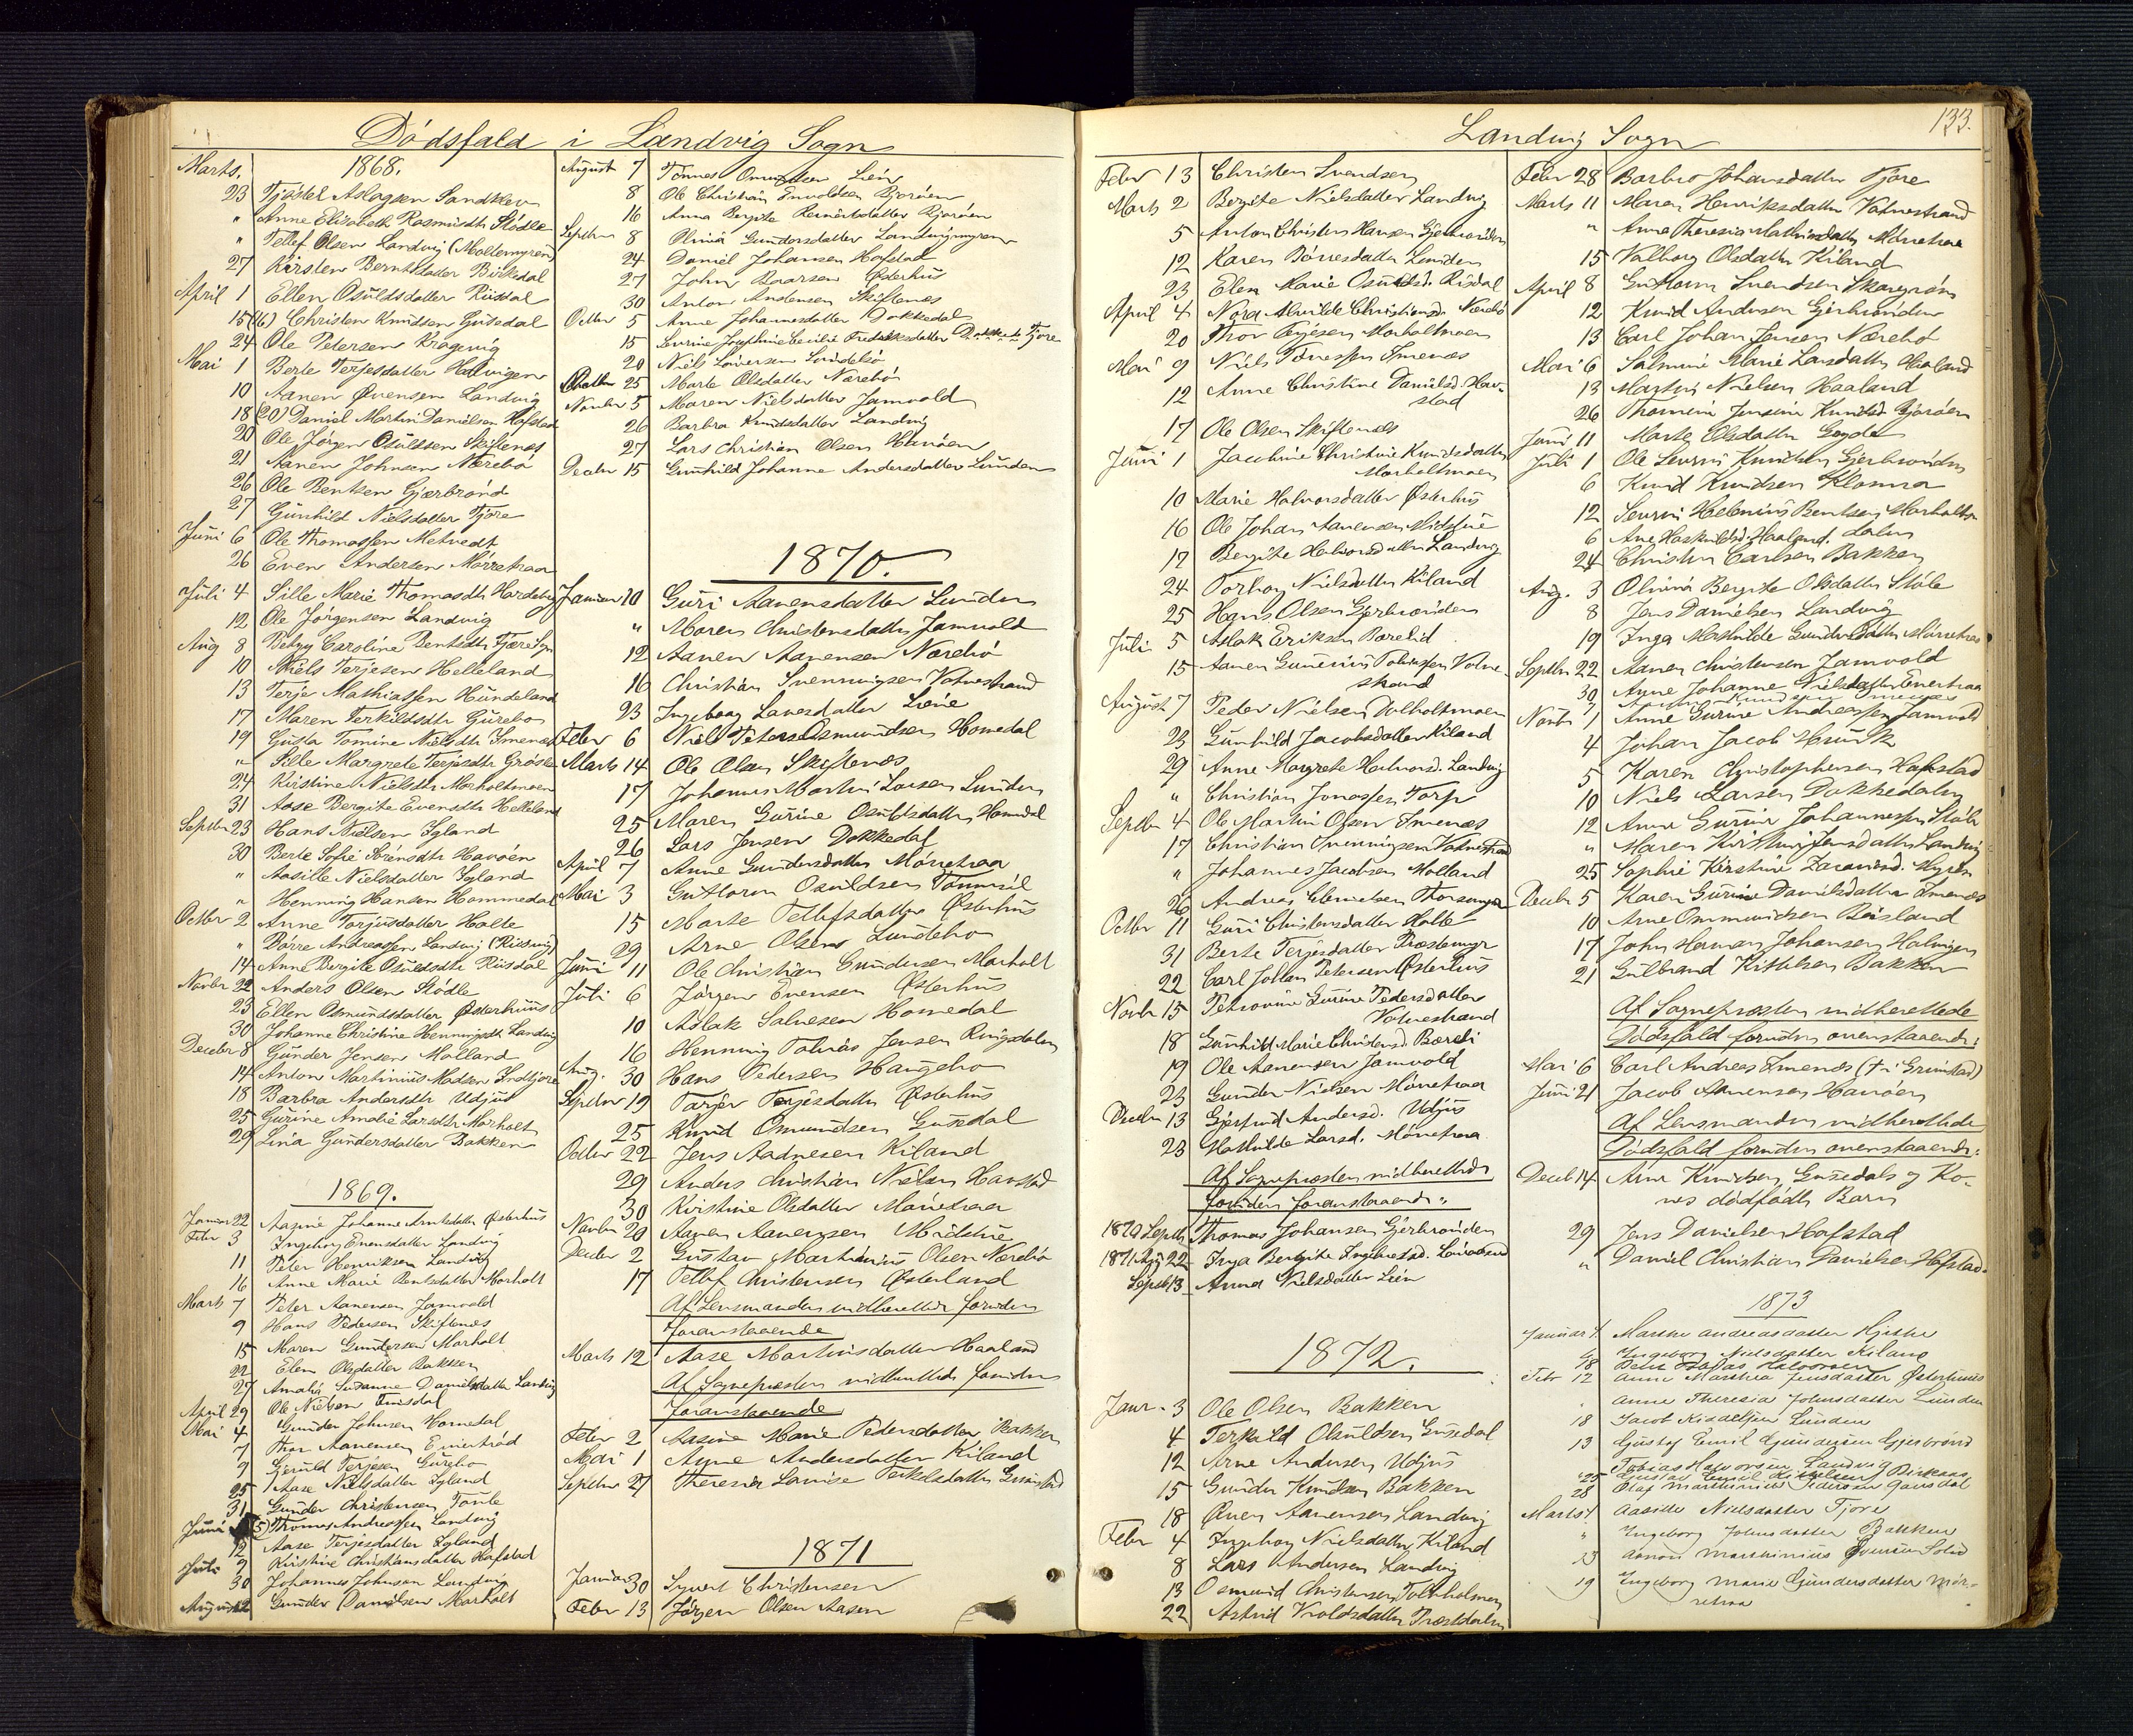 Dødsfald i Landvig Sogn
Marts. 1868.
23 Tjøstel Aslagsen Sandklev
" Anne Elisabeth Rasmusdtr Stødle
" Tellef Olsen Landvig (Moltemyren)
27 Kirsten Berntsdatter Birkedal
April 1 Ellen Osuldsdatter Riisdal
15 (16) Christen Knudsen Gusedal
24 Ole Petersen Kragevig
Mai 1 Berte Terjesdatter Halvigen
10 Aanen Øvensen Landvig
18 (20) Daniel Martin Danielsen Hafstad
20 Ole Jørgen Osuldsen Skiftenes
21 Aanen Johnsen Nærebø
26 Ole Bentsen Gjærbrønd
27 Gunhild Nielsdatter Fjøre
Juni 6 Ole Thomassen Metvedt
26 Even Andersen Mørretraa
Juli 4 Sille Marie Thomasdtr Hardeberg
12 Ole Jørgensen Landvig
Aug 8 Betzy Caroline Bentsdtr
10 Niels Terjesen Helleland
13 Terje Mathiassen Hundeland
17 Maren Terkildsdtr Gurebo
19 Gusta Tomine Nielsdtr Imenes
" Sille Margrete Terjesdtr
24 Kirstine Nielsdtr Morholtmoen
31 Aase Bergite Evensdtr Helleland
Septbr 23 Hans Nielsen Igland
30 Berte Sofie Sørensdtr Havøen
" Aasille Nielsdatter Igland
" Henning Hansen Hommedal
Octbr 2 Anne Torjusdatter Holte
" Børre Andreassen Landvig
14 Anne Bergite Osuldsdtr Riisdal
Novbr 22 Anders Olsen Stødle
23 Ellen Osmundsdatter Østerhuus
30 Johanne Christine Henningsdtr Landvig
Decebr 8 Gunder Jensen Molland
14 Anton Martinius Madsen Indtjore
18 Barbra Andersdtr Udjus
25 Gurine Amalie Larsdtr Morholt
29 Lina Gundersdatter Bakken
1869.
Januar 22 Aasine Johanne Arntsdatter Østerhus
Febr 3 Ingeborg Evensdatter Landvig
11 Peter Henriksen Landvig
16 Anne Marie Bentsdatter Morholt
Marts 7 Peter Aanensen Jamvold
9 Hans Pedersen Skiftenes
15 Maren Gundersen Morholt
22 Elen Olsdatter Bakken
27 Amalia Susanne Danielsdatter Landvig
April 29 Ole Nielsen
Mai 4 Gunder Johnsen Homedal
7 Thor Aanensen
9 Gjeruld Terjesen Gurebo
25 Aase Nielsdatter Igland
31 Gunder Christensen
Juni (5) Thomas Andreassen Landvig
12 Aase Terjesdatter Igland
Juli 9 Kirstine Christiansdatter Hafstad
30 Johannes Johnsen Landvig
August 12 Gunder Danielsen Morholt
August 7 Tønnes Omundsen Lien
8 Ole Christian Envoldsen Bjorøen
16 Anna Bergite Reinertsdatter Bjorøen
Septbr 8 Olina Gundersdatter Landvigmyren
24 Daniel Johansen Hafstad
27 John Baarsen Østerhus
30 Anton Andersen Skiftenes
Octbr 5 Anne Johannesdatter Dokkedal
15 Sevrine Josephine Cecilie Fredriksdatter Fjøre
20 Niels Sørensen
25 Marte Olsdatter Nærebø
Novbr 5 Maren Nielsdatter Jamvold
26 Barbra Knudsdatter Landvig
27 Lars Christian Olsen Havøen
Decbr 15 Gunhild Johanne Andersdatter Lunden
1870.
Januar 10 Guri Aanensdatter Lunden
" Maren Christensdatter Jamvold
12 Aanen Aanensen Nærebø
16 Christian Svenningsen Vatnestrand
23 Ingeborg Larsdatter Liene
Febr 6 Niels Peter Osmundsen Homedal
Marts 14 Ole Olsen Skiftenes
17 Johannes Martin Larsen Lunden
25 Maren Gurine Osuldsdatter Homedal
26 Lars Jensen Dokkedal
April 7 Anne Gundersdatter Mørretraa
Mai 3 Guttorm Osuldsen
15 Marte Tellefsdatter Østerhus
29 Arne Olsen Lundebo
Juni 11 Ole Christian Gundersen Morholt
Juli 6 Jørgen Evensen Østerhus
10 Aslak Salvesen Homedal
16 Henning Tobias Jensen Ringsdalen
Aug. 30 Hans Pedersen Haugebo
Septbr 19 Tarjer Terjesdatter Østerhus
25 Knud Osmundsen Gusedal
Octbr 22 Jens Aadnesen Kiland
29 Anders Christian Nielsen Havstad
30 Kirstine Olsdatter Mørretraa
Novbr 20 Aanen Aanensen
Decbr 2 Gustav Martinius Olsen Nærebø
17 Tellef Christensen Østerland
Af Lensmanden indberettede foruden
foranstaaende
Marts 12 Aase Martinsdatter Haaland
Af Sognepresten indberettede foruden
foranstaaende
Febr 2 Aasine Marie Pedersdatter Bakken
Mai 1 Anne Andersdatter Kiland
Septbr 27 Theresia Lovise Terkelsdatter
1871
Januar 30 Syvert Christensen
Febr 13 Jørgen Olsen Aasen
133.
Landvig Sogn
Febr 13 Christen Svendsen
Marts 2 Bergite Nielsdatter Landvig
5 Anton Christen Hansen Gjerbrønden
12 Karen Børresdatter Lunden
23 Elen Marie Osuldsd. Risdal
April 4 Nora Alvilde Christiansd. Nærebø
20 Thor Terjesen Morholtmoen
Mai 9 Niels Tønnessen Imenes
12 Anne Christine Danielsd. Hav-
stad
17 Ole Olsen Skiftenes
Juni 1 Jacobine Christine Knudsdatter
Morholtmoen
10 Marie Halvorsdatter Østerhus
16 Ole Johan Aanensen
17 Bergite Halvorsdatter Landvig
24 Torborg Nielsdatter Kiland
25 Hans Olsen Gjerbrønden
Juli 5 Aslak Eriksen
15 Aanen Gunerius Tobiassen Vatne-
strand
August 7 Peder Nielsen
23 Gunhild Jacobsdatter Kiland
29 Anne Margrete Halvorsd. Landvig
" Christian Jonassen Torp
Septbr 4 Ole Martin Olsen Imenes
17 Christian Svenningsen Vatnestrand
" Johannes Jacobsen Molland
26 Andreas
Octbr 11 Guri Christensdatter Holte
31 Berte Terjesdatter Præstemyr
22 Carl Johan Petersen Østerhus
Novbr 15 Petrovine Gurine Pedersdatter
Vatnestrand
18 Gunhild Marie Christensd.
19 Ole Aanensen Jamvold
23 Gunder Nielsen Mørretraa
Decbr 13 Gjertrud Andersd. Udjus
23 Mathilde Larsd. Mørretraa
Af Sognepresten indberettede
foruden foranstaaende:
1870 Septb Thomas Johansen Gjerbrønden
1871 Aug 22 Inga Bergite Ingebretsd.
Septb 13 Anna Nielsdatter Lien
1872.
Janr. 3 Ole Olsen Bakken
4 Terkild Osuldsen Gusedal
12 Arne Andersen Udjus
15 Gunder Knudsen Bakken
18 Øven Aanensen Landvig
Febr 4 Ingeborg Nielsdatter Kiland
8 Lars Andersen Landvig
13 Osmund Christensen
22 Astrid Præstdalen
Febr 28 Barbro Johansdatter Fjøre
Marts 11 Maren Henriksdatter Vatnestrand
" Anne Theresia Mathiasdatter Mørretraa
15 Valborg Olsdatter Kiland
April 8 Guttorm Svendsen
12 Knud Andersen Gjerbrønden
13 Carl Johan Jensen Nærebø
Mai 6 Salmine Marie Larsdatter Haaland
13 Martin Nielsen Haaland
26 Thomine Jensine Knudsd. Bjorøen
Juni 11 Marte Olsdatter
Juli 1 Ole Severin Knudsen Gjerbrønden
6 Knud Knudsen Klonna
12 Severin Helenius Bentsen Morholt
6 Ane Haaland.
24 Christen Carlsen Bakken
Aug. 3 Olivia Bergite Olsdatter Støle
8 Jens Danielsen Landvig
19 Inga Mathilde Mørretraa
Septbr 22 Aanen Christensen Jamvold
30 Anne Johanne Nielsdatter
Novbr 1 Anne Gurine Andreassen Jamvold
4 Johan Jacob
5 Karen Christophersen Hafstad
10 Niels Larsen Dokkedalen
12 Anne Gurine Johannessen Støle
" Maren Kirstine Jensdatter Landvig
25 Sophie Kirstine
Decbr 5 Karen Gurine Danielsdatter Imenes
10 Arne Ommundsen Beisland
17 John Herman Johansen Halvigen
21 Gulbrand Kittelsen Bakken
Af Sognepresten indberettede
Dødsfald foruden ovenstaaende:
Mai 6 Carl Andreas Imenes († i Grimstad)
Juni 21 Jacob Aanensen Havøen
Af Lensmanden indberettede
Dødsfald foruden ovenstaaende:
Decb 14 Arne Knudsen Gusedals og Ko-
nes dødfødte Barn
29 Jens Danielsen Hafstad
" Daniel Christian Danielsen Hafstad.
1873
Januar 1. Marthe Andreasdatter
4 Ingeborg Nielsdatter Kiland
18 Halvorsen
Febr 12 Anne Marthea Jensdatter Østerhuus
" Anne Theresia Johnsdatter Lunden
18 Jacob Lunden
13 Gustaf Emil Gundersen Gjerbrønd
Tobias Halvorsen Landvig
25 Gustav Emil
28 Olaf Marthinius Pedersen
Marts 1. Aasille Nielsdatter Fjøre
" Ingeborg Johnsdatter Bakken
13 Marthinius
19 Ingeborg Marie Gundersdatter Mør-
retraa